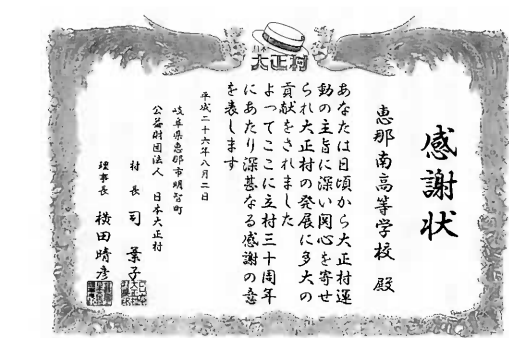 日本
大正村
感謝状
恵那南高等学校 殿
あなたは日頃から大正村運
動の主旨に深い関心を寄せ
られ大正村の発展に多大の
貢献をされました
よってここに立村三十周年
にあたり深甚なる感謝の意
を表します
平成二十六年八月二日
岐阜県恵那市明智町
公益財団法人 日本大正村
村長 司 葉子
理事長 横田晴彦